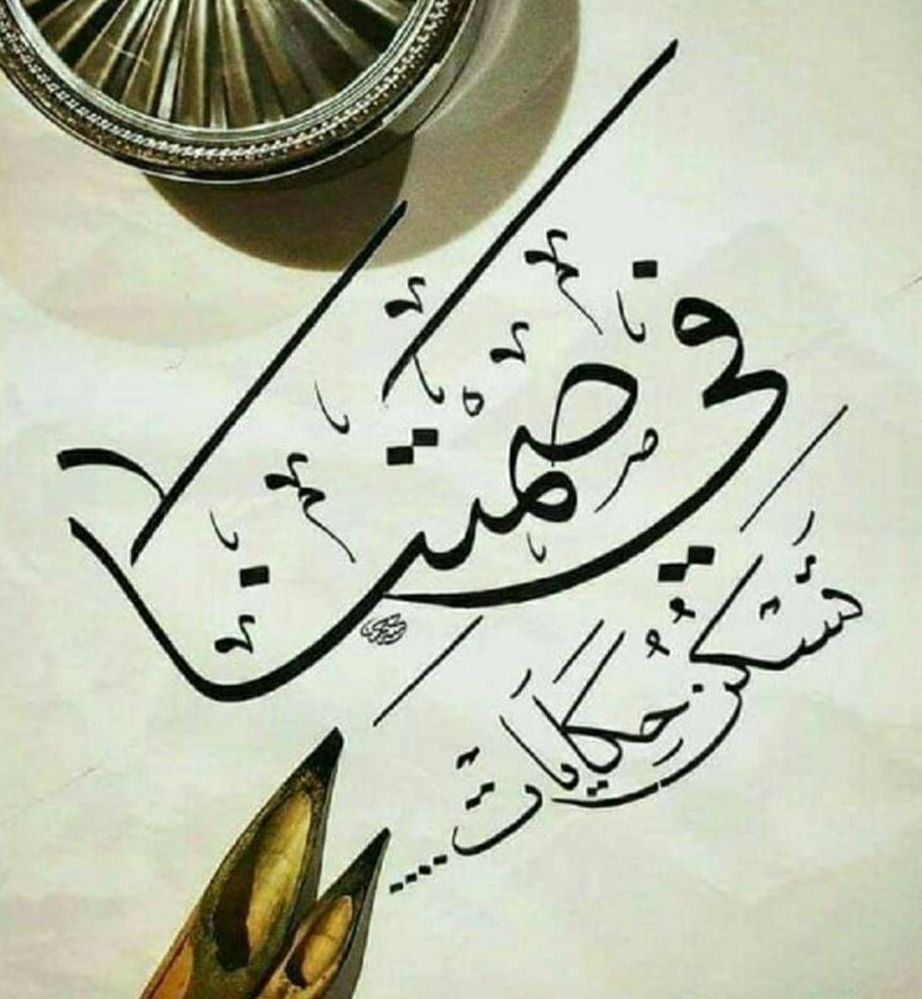 في صمتنا
تسكن حكايات ....